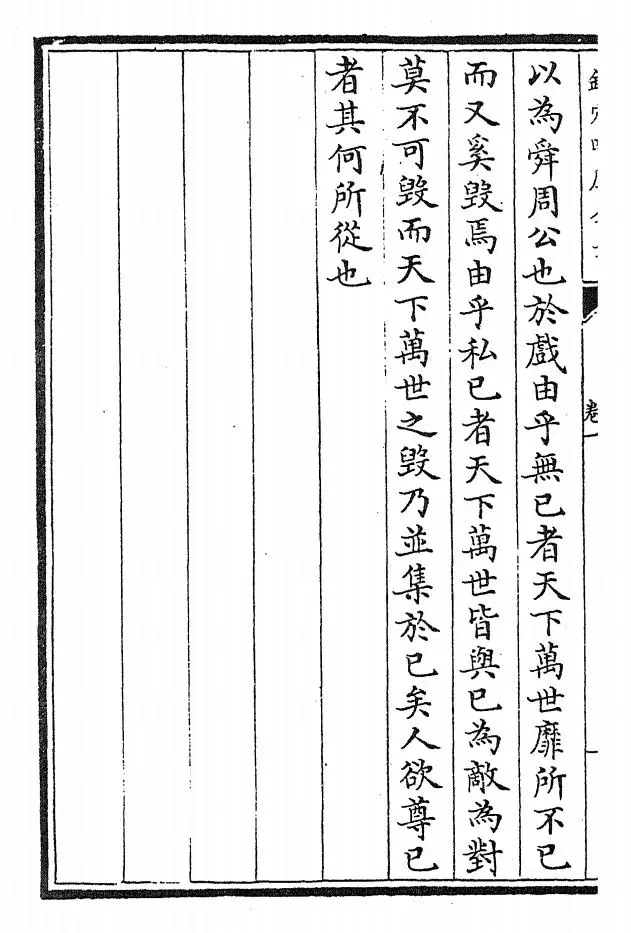 以為舜周公也於戲由乎無已者天下萬世靡所不已
而又奚毀焉由乎私已者天下萬世皆與已為敵為對
莫不可毀而天下萬世之毀乃並集於已矣人欲尊已
者其何所從也
卷